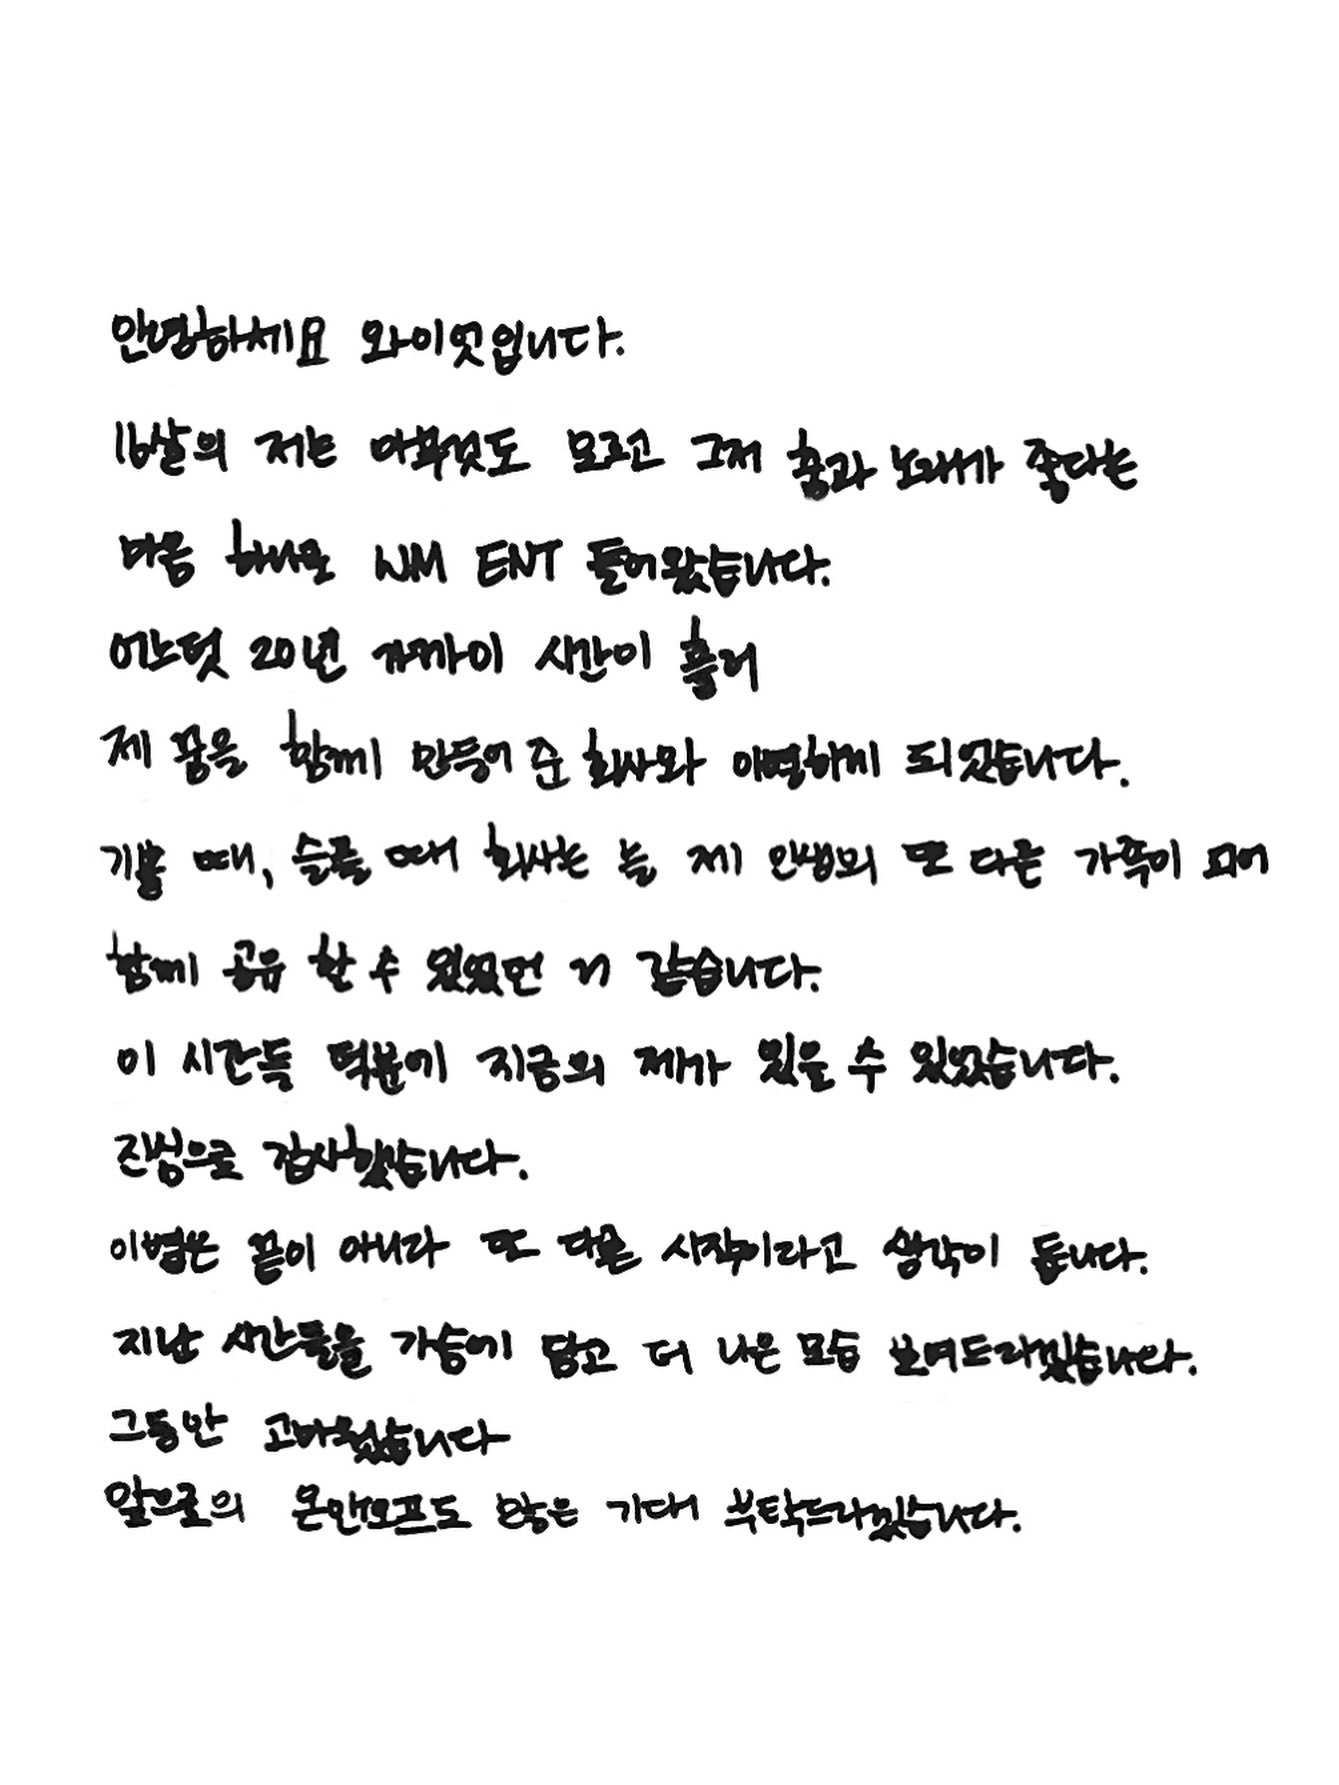 안녕하세요 와이엇입니다.
16살의 저는 아무것도 모르고 그저 춤과 노래가 좋다는
마음 하나로 WM ENT 들어왔습니다.
어느덧 20년 가까이 시간이 흘러
제 꿈을 함께 만들어 준 회사와 이별하게 되었습니다.
기쁠 때, 슬플 때 회사는 늘 제 인생의 또 다른 가족이 되어
함께 공유 할 수 있었던 거 같습니다.
이 시간들 덕분에 지금의 제가 있을 수 있었습니다.
진심으로 감사했습니다.
이별은 끝이 아니라 또 다른 시작이라고 생각이 듭니다.
지난 시간들을 가슴에 담고 더 나은 모습 보여드리겠습니다.
그동안 고마웠습니다
앞으로의 온앤오프도 많은 기대 부탁드리겠습니다.